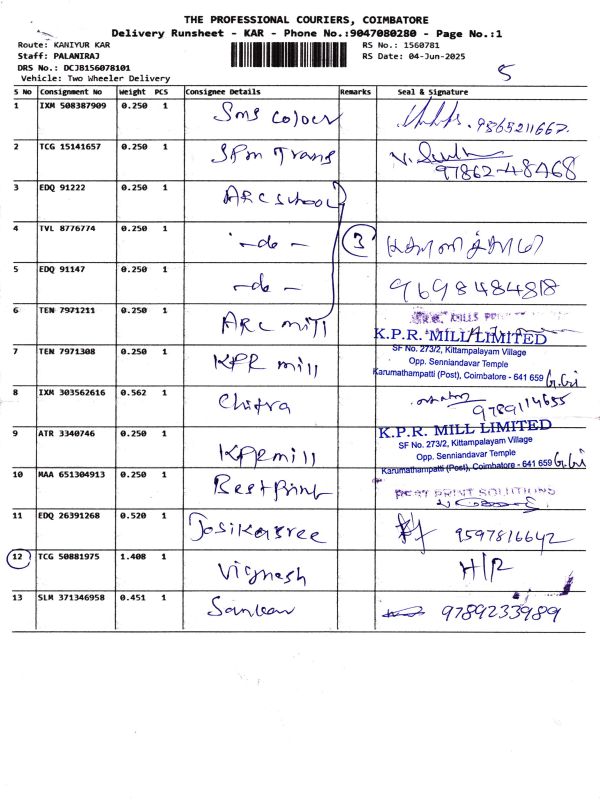 THE PROFESSIONAL COURIERS, COIMBATORE
Delivery Runsheet - KAR - Phone No.:9047080280 - Page No.:1
Route: KANIYUR KAR RS No.: 1560781
Staff: PALANIRAJ RS Date: 04-Jun-2025
DRS No.: DCJ8156078101
Vehicle: Two Wheeler Delivery 5
S No Consignment No Weight PCS Consignee Details Remarks Seal & Signature
1 IXM 508387909 0.250 1 Sms colour 9565211667.
2 TCG 15141657 0.250 1 SPm Trans 97862-48468
3 EDQ 91222 0.250 1 ARC school
4 TVL 8776774 0.250 1 -do- 3
5 EDQ 91147 0.250 1 -do- 9698484818
6 TEN 7971211 0.250 1 ARC mill MILLS
K.P.R. MILL LIMITED
7 TEN 7971308 0.250 1 KPR mill SF No. 273/2, Kittampalayam Village
Opp. Senniandavar Temple
Karumathampatti (Post), Coimbatore - 641 659
8 IXM 303562616 0.562 1 Chitra 9789114655
9 ATR 3340746 0.250 1 KPR mill K.P.R. MILL LIMITED
SF No. 273/2, Kittampalayam Village
Opp. Senniandavar Temple
Karumathampatti (Post), Coimbatore - 641 659
10 MAA 651304913 0.250 1 Best Print BEST PRINT SOLUTIONS
11 EDQ 26391268 0.520 1 Josikasree 9597816642
12 TCG 50881975 1.408 1 Vignesh H/R
13 SLM 371346958 0.451 1 Sankar 9789233989